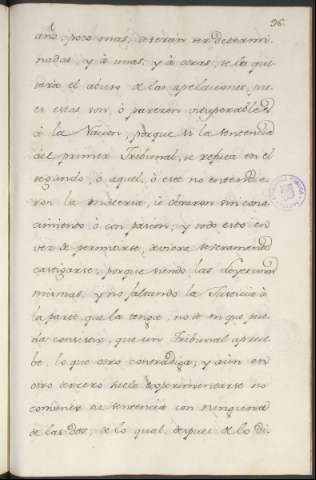 96.
año, poco mas, deveran ser determi-
nadas, y à unas, y à otras, se la qui-
tarà el abuso de las apelaciones, pu-
es estas son, ò parecen insuperables
à la Nacion, porque si la sentencia
del primer Tribunal, se refuta en el
segundo, ò aquel, ò este no entendie-
ron la materia, ò obraron sin cono-
cimiento ò con pasion; y todo esto en
vez de permitirse, deviera severamente
castigarse, porque siendo las Leyes unas
mismas, y no faltando la Justicia à
la parte que la tenga, no sè en que pue-
da consistir, que un Tribunal aprue-
be, lo que otro contradiga; y aùn en
otro tercero suele experimentarse no
convenir su sentencia con ninguna
de las dos, de lo qual despues de lo di-